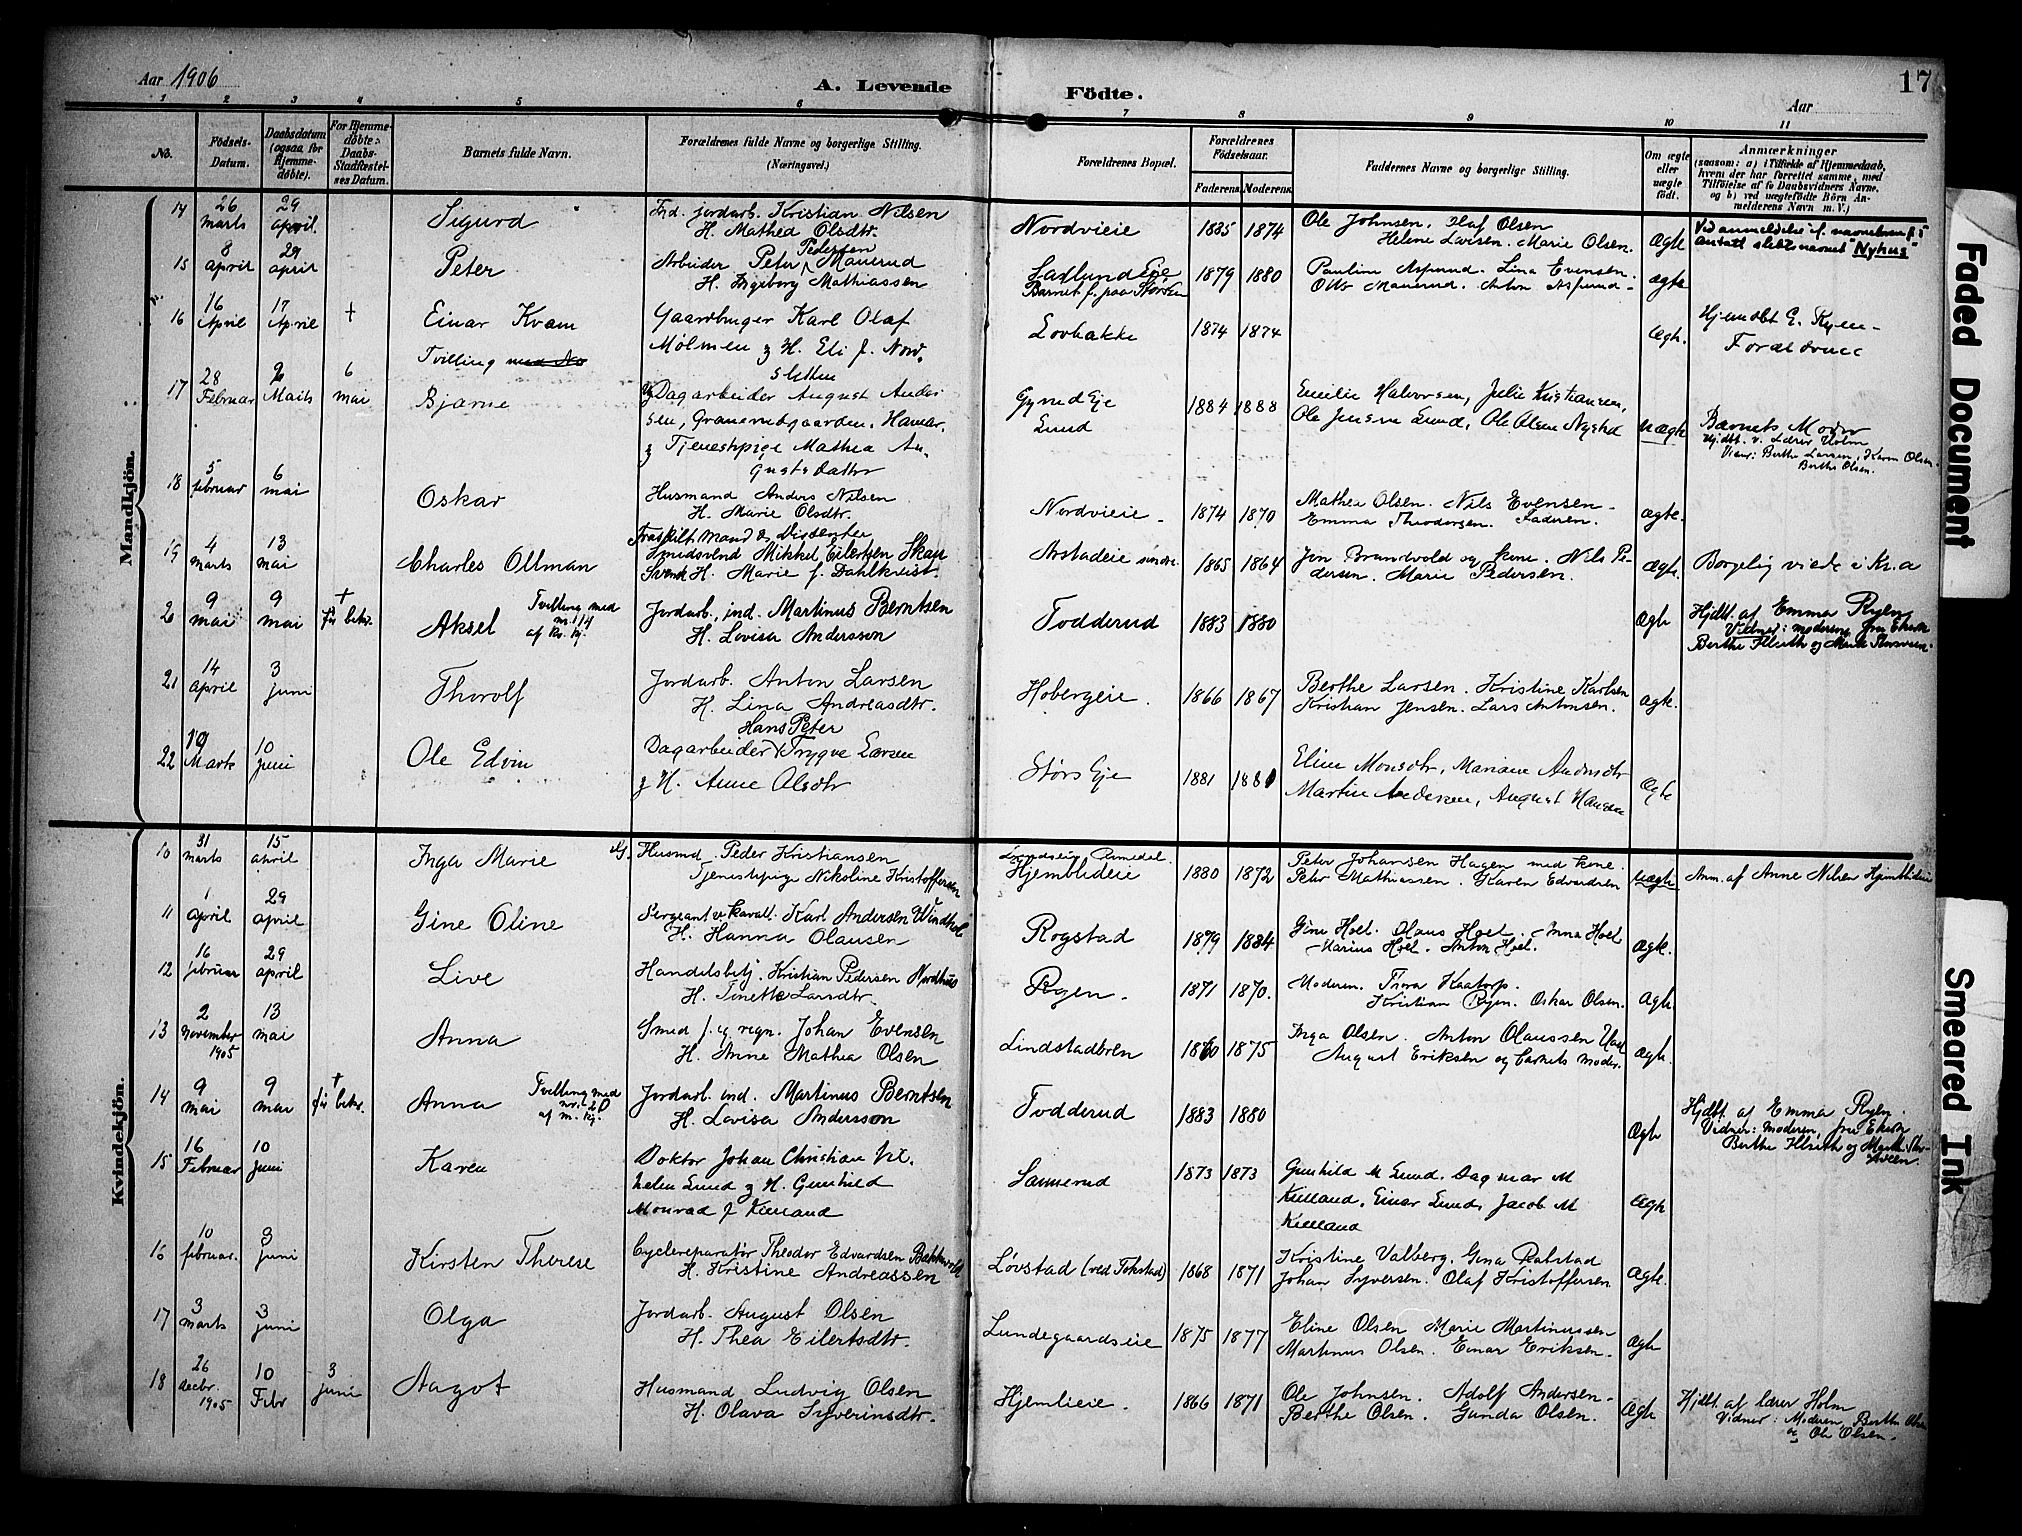 Aar 1906
A. Levende
Födte.
Aar
17
1 2 3 4 5 6 7 8 9 10 11
No.
Födsels-
Datum.
Daabsdatum
(ogsaa for
Hjemme-
döbte).
For Hjemme-
döbte:
Daabs-
Stadfæstel-
ses Datum.
Barnets fulde Navn.
Forældrenes fulde Navne og borgerlige Stilling.
(Næringsvei.)
Forældrenes Bopæl.
Forældrenes
Födselsaar.
Faderens. Moderens.
Faddernes Navne og borgerlige Stilling.
Om ægte
eller
uægte
født.
Anmærkninger
(saasom: a) i Tilfælde af Hjemmedaab,
hvem der har forrettet samme, med
Tilføielse af to Daabsvidners Navne,
og b) ved uægtefødte Börn An-
melderens Navn m. V.)
Mandkjön.
14 26 marts 29 april Sigurd
Ind. jordarb. Kristian Nilsen
H. Mathea Olsdtr.
Nordvieie 1835 1874
Ole Johnsen. Olaf Olsen
Helene Larsen. Marie Olsen. Ægte
Ved anmeldelse
antatt slektsnavnet "Nyhus"
15 8 april 29 april Peter
Pedersen
Arbeider Peter Mauerud
H. Ingeborg Mathiassen
Eie
Barnet f. paa
1879 1880
Pauline Asprud. Lina Evensen.
Otto Mauerud. Anton Asprud. ægte
16 16 April 17 April + Einar Kvam
Gaardbruger Karl Olaf
Mølmen g H. Eli f. Nord-
sletten
Tvilling med No
Lovbakke 1874 1874 Ægte.
Hjemdbt E. Ryen-
Forældrene
17 28 Februar Marts 6 mai Bjarne
Ug Dagarbeider August Ander
sen, Hamar,
g Tjenestepige Mathea Au-
gustsdatter
Eje
Lund
1884 1888
Emilie Halvorsen, Julie Kristiansen,
Ole Jensen Lund, Ole Olsen Nystad Uægte
Barnets Moder
Hjdbt. v. Lærer Holm
Vidner: Berthe Larsen, Karen Olsen.
Berthe Olsen.
18 5 februar 6 mai Oskar
Husmand Anders Nilsen
H. Marie Olsdtr.
Nordvieie. 1874 1870
Mathea Olsen. Nils Evensen-
Emma Theodorsen. Faderen. ægte.
19 4 marts 13 mai Charles Ottman
Fraskilt mand & Dissenter
Smedsvend Mikkel Eilertsen Skau
Svensk H. Marie f. Dahlkvist.
Arstadeie søndre 1865 1864
Jon Brandvold og kone. Nils Pe-
dersen. Marie Pedersen. ægte.
Borgelig viede i Kr.a
20 9 mai 9 mai + før bekr. Aksel
Tvilling med
nr. 14
af Kv. kj.
Jordarb. ind. Martinus Berntsen
H. Lovisa Andersson
Todderud 1883 1880 Ægte
Hjdbt. af Emma Ryen
Vidner: moderen, fru
Berthe og
21 14 april 3 juni Thorolf
Jordarb. Anton Larsen
H. Lina Andreasdtr.
Hobergeie. 1866 1867
Berthe Larsen. Kristine Karlsen
Kristian Jensen. Lars Antonsen. ægte.
22 Marts 10 Juni Ole Edvin
Hans Peter
Dagarbeider Trygve Larsen
g H. Anne Olsdtr
Størs Eje 1881 1881
Eline Monsdtr, Mariane Andersdtr
Martin Andersen, August Hansen Ægte
Kvindekjön.
10 31 marts 15 april Inga Marie
G. Husmd. Peder Kristiansen
Tjenestepige Nikoline Kristoffersen
Hjemblideie 1880 1872
Peter Johansen Hagen med kone
Petr Mathiassen. Karen Edvardsen Uægte
Anm. af Anne Nilsen Hjemblideie
11 1 april 29 april Gine Oline
Sergeant v kavall. Karl Andersen Windhol
H. Hanna Olausen
Rogstad 1879 1884
Gine Hoel. Olaus Hoel. Anna Hoel
Marius Hoel. Anton Hoel. Ægte.
12 16 februar 29 april Live
Handelsbetj. Kristian Pedersen Nordhus
H. Tinette Larsdtr.
Ryen. 1871 1870.
Moderen. Thora Kaatorp.
Kristian Ryen. Oskar Olsen. Ægte
13 2 november 1905 13 mai Anna
Smed f. eg regn. Johan Evensen
H. Anne Mathea Olsen
Lindstadbren 1870 1875
Inga Olsen. Anton Olaussen
August Eriksen og barnets moder. ægte.
14 9 mai 9 mai + før bekr. Anna
Tvilling med
nr. 20
af m. kj.
Jordarb. ind. Martinus Berntsen
H. Lovisa Andersson
Todderud 1883 1880 Ægte
Hjdbt. af Emma Ryen.
Vidner: moderen, fru
Berthe og
15 16 Februar 10 Juni Karen
Doktor Johan Christian Vil-
helm Lund g H. Gunhild
Monrad f Kielland
Sannerud 1873 1873
Gunhild M Lund. Dagmar M
Kielland, Einar Lund, Jacob M
Kielland Ægte
16 10 februar. 3 juni Kirsten Therese
Cyclereparatør Theodor Edvardsen Bakkevold
H. Kristine Andreassen
Løvstad (ved Tokstad) 1868 1871
Kristine Valberg. Gina Ralstad
Johan Syversen. Olaf Kristoffersen Ægte.
17 3 marts 3 juni Olga
Jordarb. August Olsen
H. Thea Eilertsdtr.
Lundegaardseie 1875 1877
Eline Olsen Marie Martinussen-
Martinus Olsen. Einar Eriksen. Ægte
18 26 decbr. 1905 10 Febr 3 juni Aagot
Husmand Ludvig Olsen
H. Olava Syverinsdtr.
Hjemlieie. 1866 1871
Ole Johnsen. Adolf Andersen-
Berthe Olsen. Gunda Olsen. Ægte
Hjdbt. af lærer Holm
Vidner: Moderen, Berthe Olsen
og Ole Olsen.
Faded Document
Smeared Ink